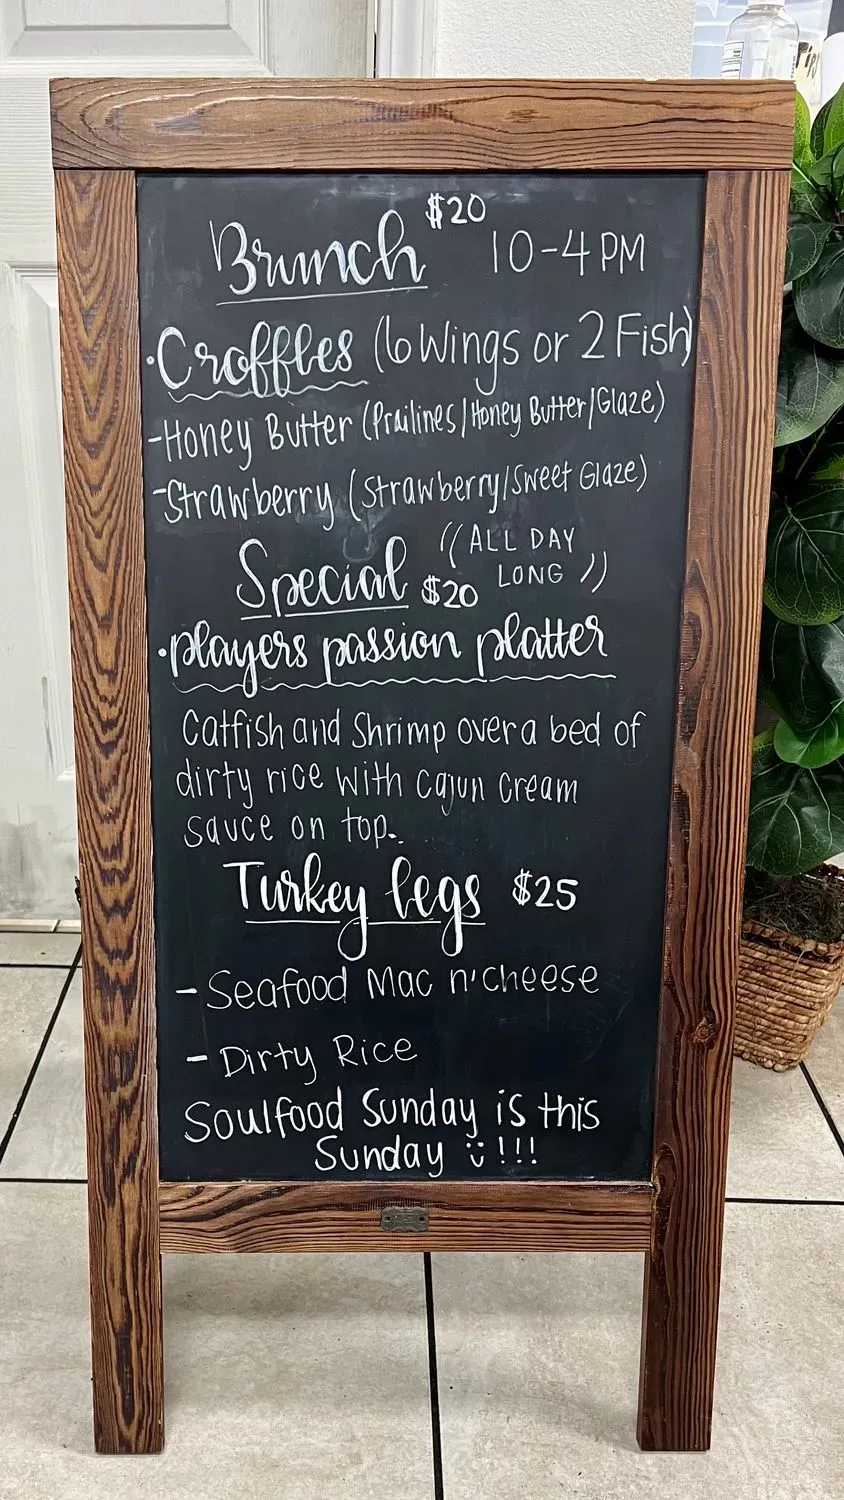 Brunch $20 10-4 PM
• Croffles (6 Wings or 2 Fish)
- Honey Butter (Prailines/Honey Butter/Glaze)
- Strawberry (Strawberry/Sweet Glaze)
Special $20 ((ALL DAY
LONG))
• players passion platter
Catfish and Shrimp over a bed of
dirty rice with cajun cream
sauce on top.
Turkey legs $25
- Seafood Mac n' cheese
- Dirty Rice
Soulfood Sunday is this
Sunday !!!